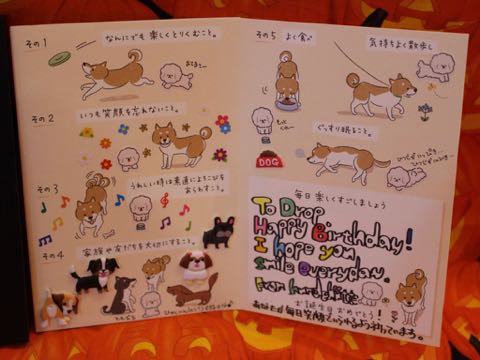 その1
なんにでも 楽しくとりくむこと。
その2
いつも笑顔を忘れないこと。
その3
うれしい時は素直によろこびを
あらわすこと。
その4
家族や友だちを大切にすること。
その5 よく食べ
気持ちよく散歩し
ぐっすり眠ること。
DOG
毎日楽しくすごしましょう
To Drop
Happy Birthday!
I hope you
Smile everyday.
From
お誕生日おめでとう!
あなたが毎日笑顔でいられるよう祈っています。